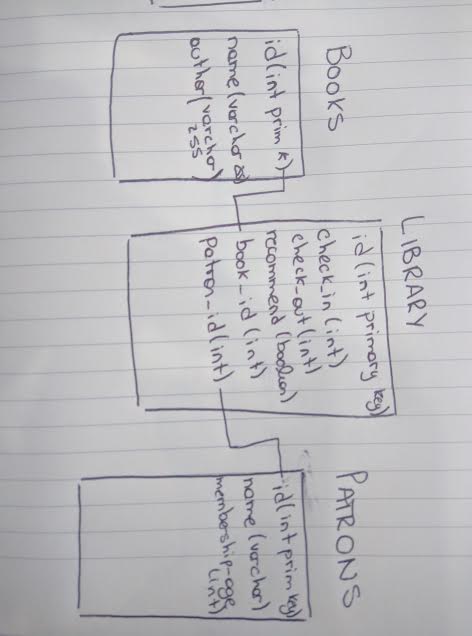 BOOKS
id (int prim k)
name (varchar 255)
author (varchar)
255
LIBRARY
id (int primary key)
check_in (int)
check_out (int)
recommend (boolean)
book_id (int)
patron_id (int)
PATRONS
id (int prim key)
name (varchar)
membership_age
(int)